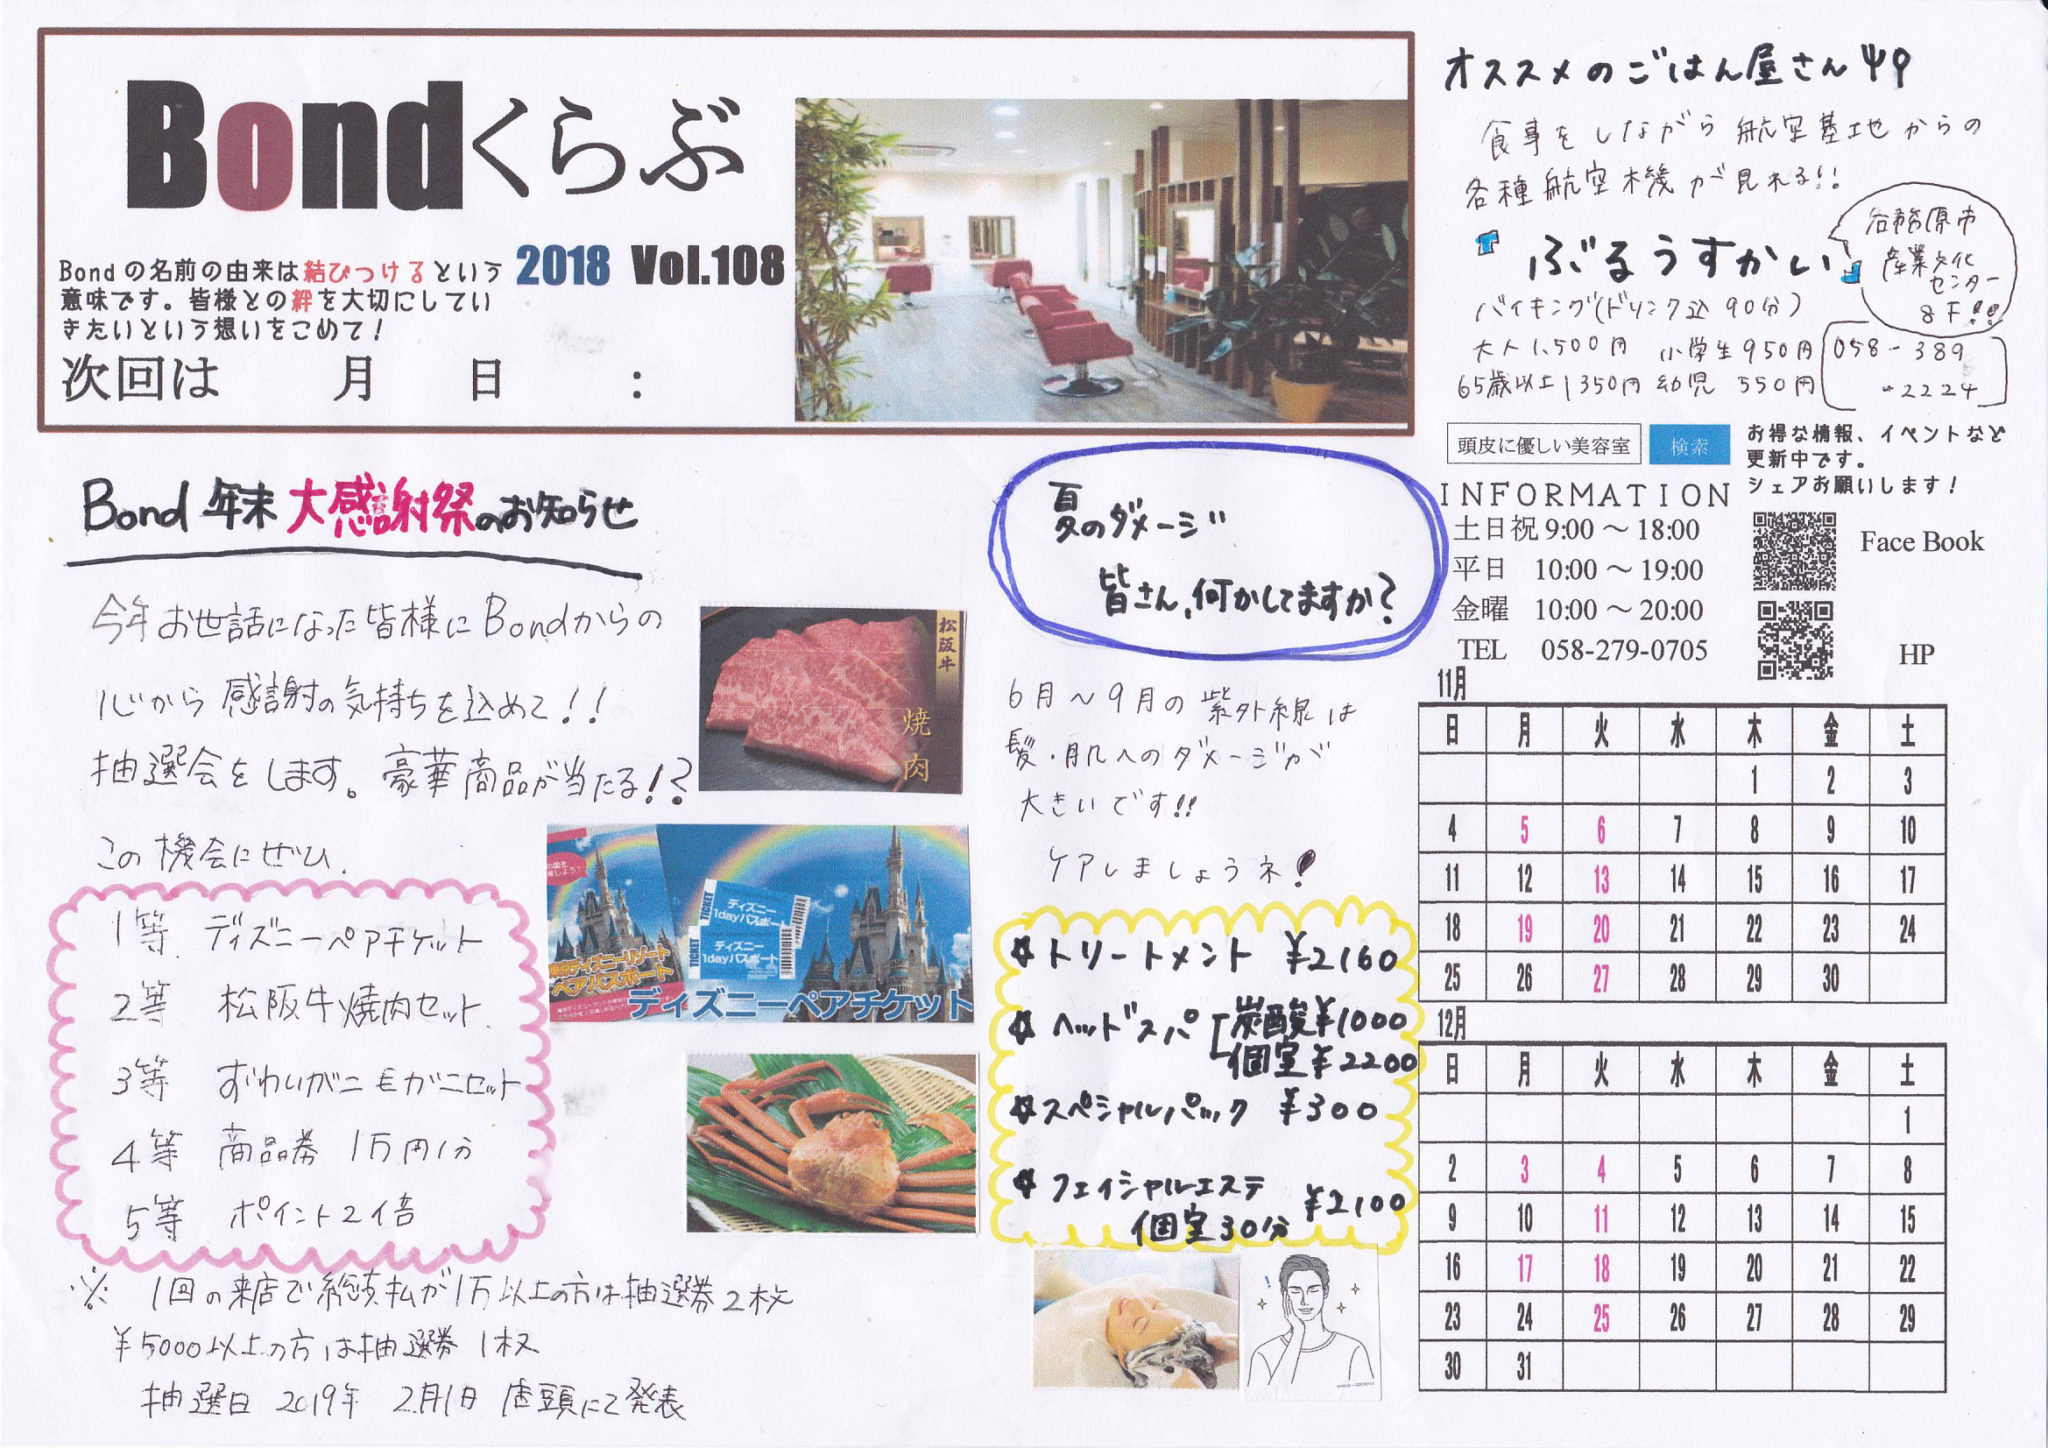 Bondくらぶ
Bondの名前の由来は結びつけるという
意味です。皆様との絆を大切にしてい
きたいという想いをこめて！
2018 Vol.108
次回は　　月　　日　　：
オススメのごはん屋さん
食事をしながら航空基地からの
各種航空機が見れる!!
『ぶるうすかい』
各務原市
産業文化
センター
8F!!
バイキング(ドリンク込 90分)
大人1,500円 小学生950円
65歳以上1350円 幼児 550円
058-389
-2224
頭皮に優しい美容室 検索
お得な情報、イベントなど
更新中です。
シェアお願いします！
INFORMATION
土日祝 9:00 ～ 18:00
平日 10:00 ～ 19:00
金曜 10:00 ～ 20:00
TEL 058-279-0705
Face Book
HP
Bond 年末 大感謝祭のお知らせ
今年お世話になった皆様にBondからの
心から感謝の気持ちを込めて!!
抽選会をします。豪華商品が当たる!?
この機会にぜひ.
1等 ディズニーペアチケット
2等 松阪牛焼肉セット
3等 ずわいがニ毛がニセット
4等 商品券 1万円分
5等 ポイント2倍
※ 1回の来店で総支払が1万以上の方は抽選券2枚
¥5000以上の方は抽選券 1枚
抽選日 2019年 2月1日 店頭にて発表
松阪牛
焼肉
東京ディズニーリゾート
ペアパスポート
TICKET
ディズニー
1dayパスポート
TICKET
ディズニー
1dayパスポート
ディズニーペアチケット
夏のダメージ
皆さん、何かしてますか?
6月～9月の紫外線は
髪・肌へのダメージが
大きいです!!
ケアしましょうネ!
☆トリートメント ¥2160
☆ヘッドスパ 炭酸¥1000
個室¥2200
☆スペシャルパック ¥300
☆フェイシャルエステ
個室30分 ¥2100
11月
日 月 火 水 木 金 土
1 2 3
4 5 6 7 8 9 10
11 12 13 14 15 16 17
18 19 20 21 22 23 24
25 26 27 28 29 30
12月
日 月 火 水 木 金 土
1
2 3 4 5 6 7 8
9 10 11 12 13 14 15
16 17 18 19 20 21 22
23 24 25 26 27 28 29
30 31